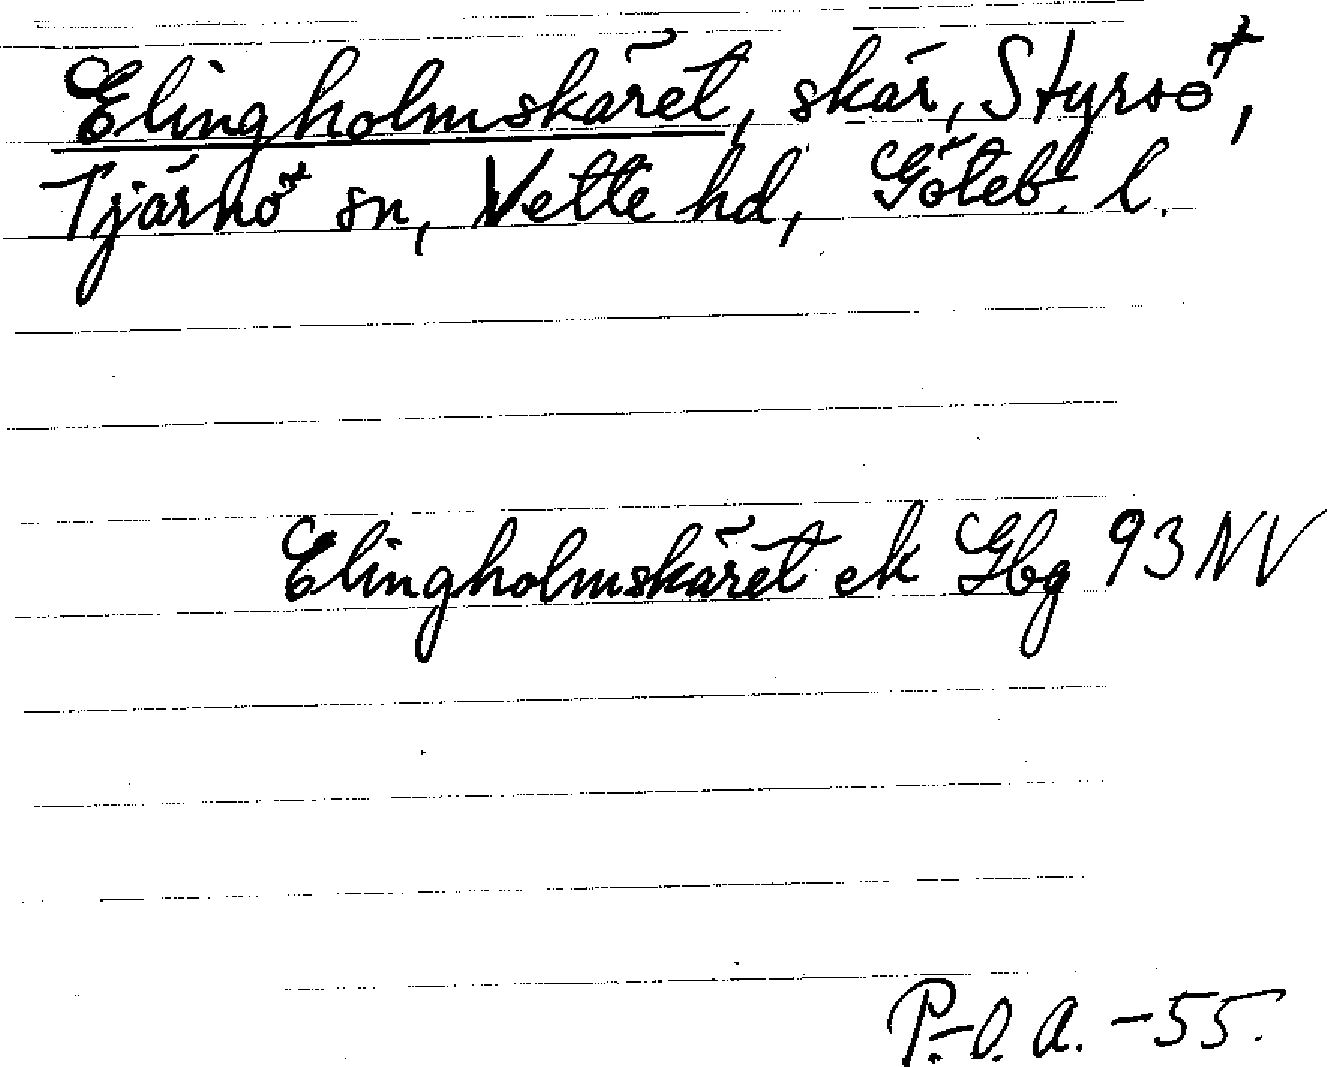 Elingholmskäret, skär, Styrsö,
Tjärnö sn, Vette hd, Göteb. l.
Elingholmskäret ek Gbg 93 NV
P.-O. A. -55.